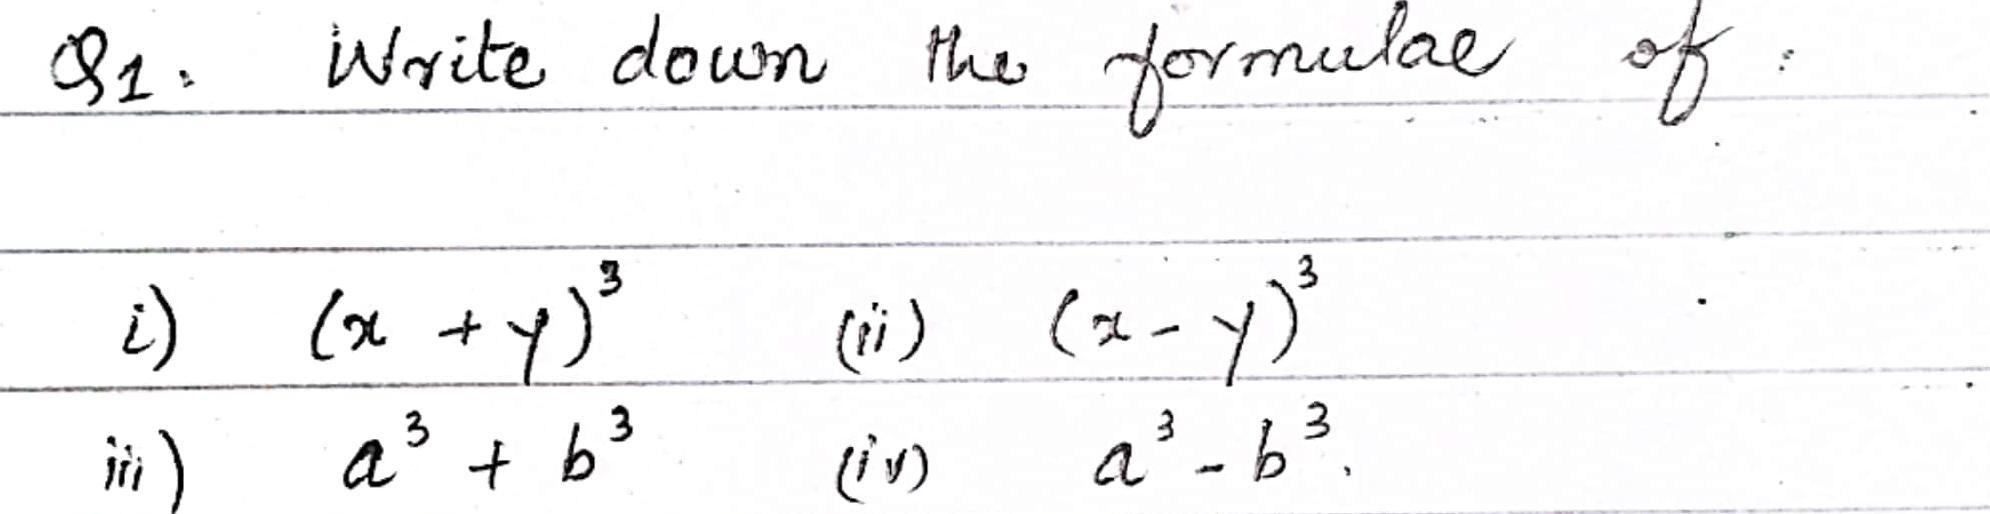 Q1. Write down the formulae of :
i) (x + y)³ (ii) (x - y)³
iii) a³ + b³ (iv) a³ - b³.